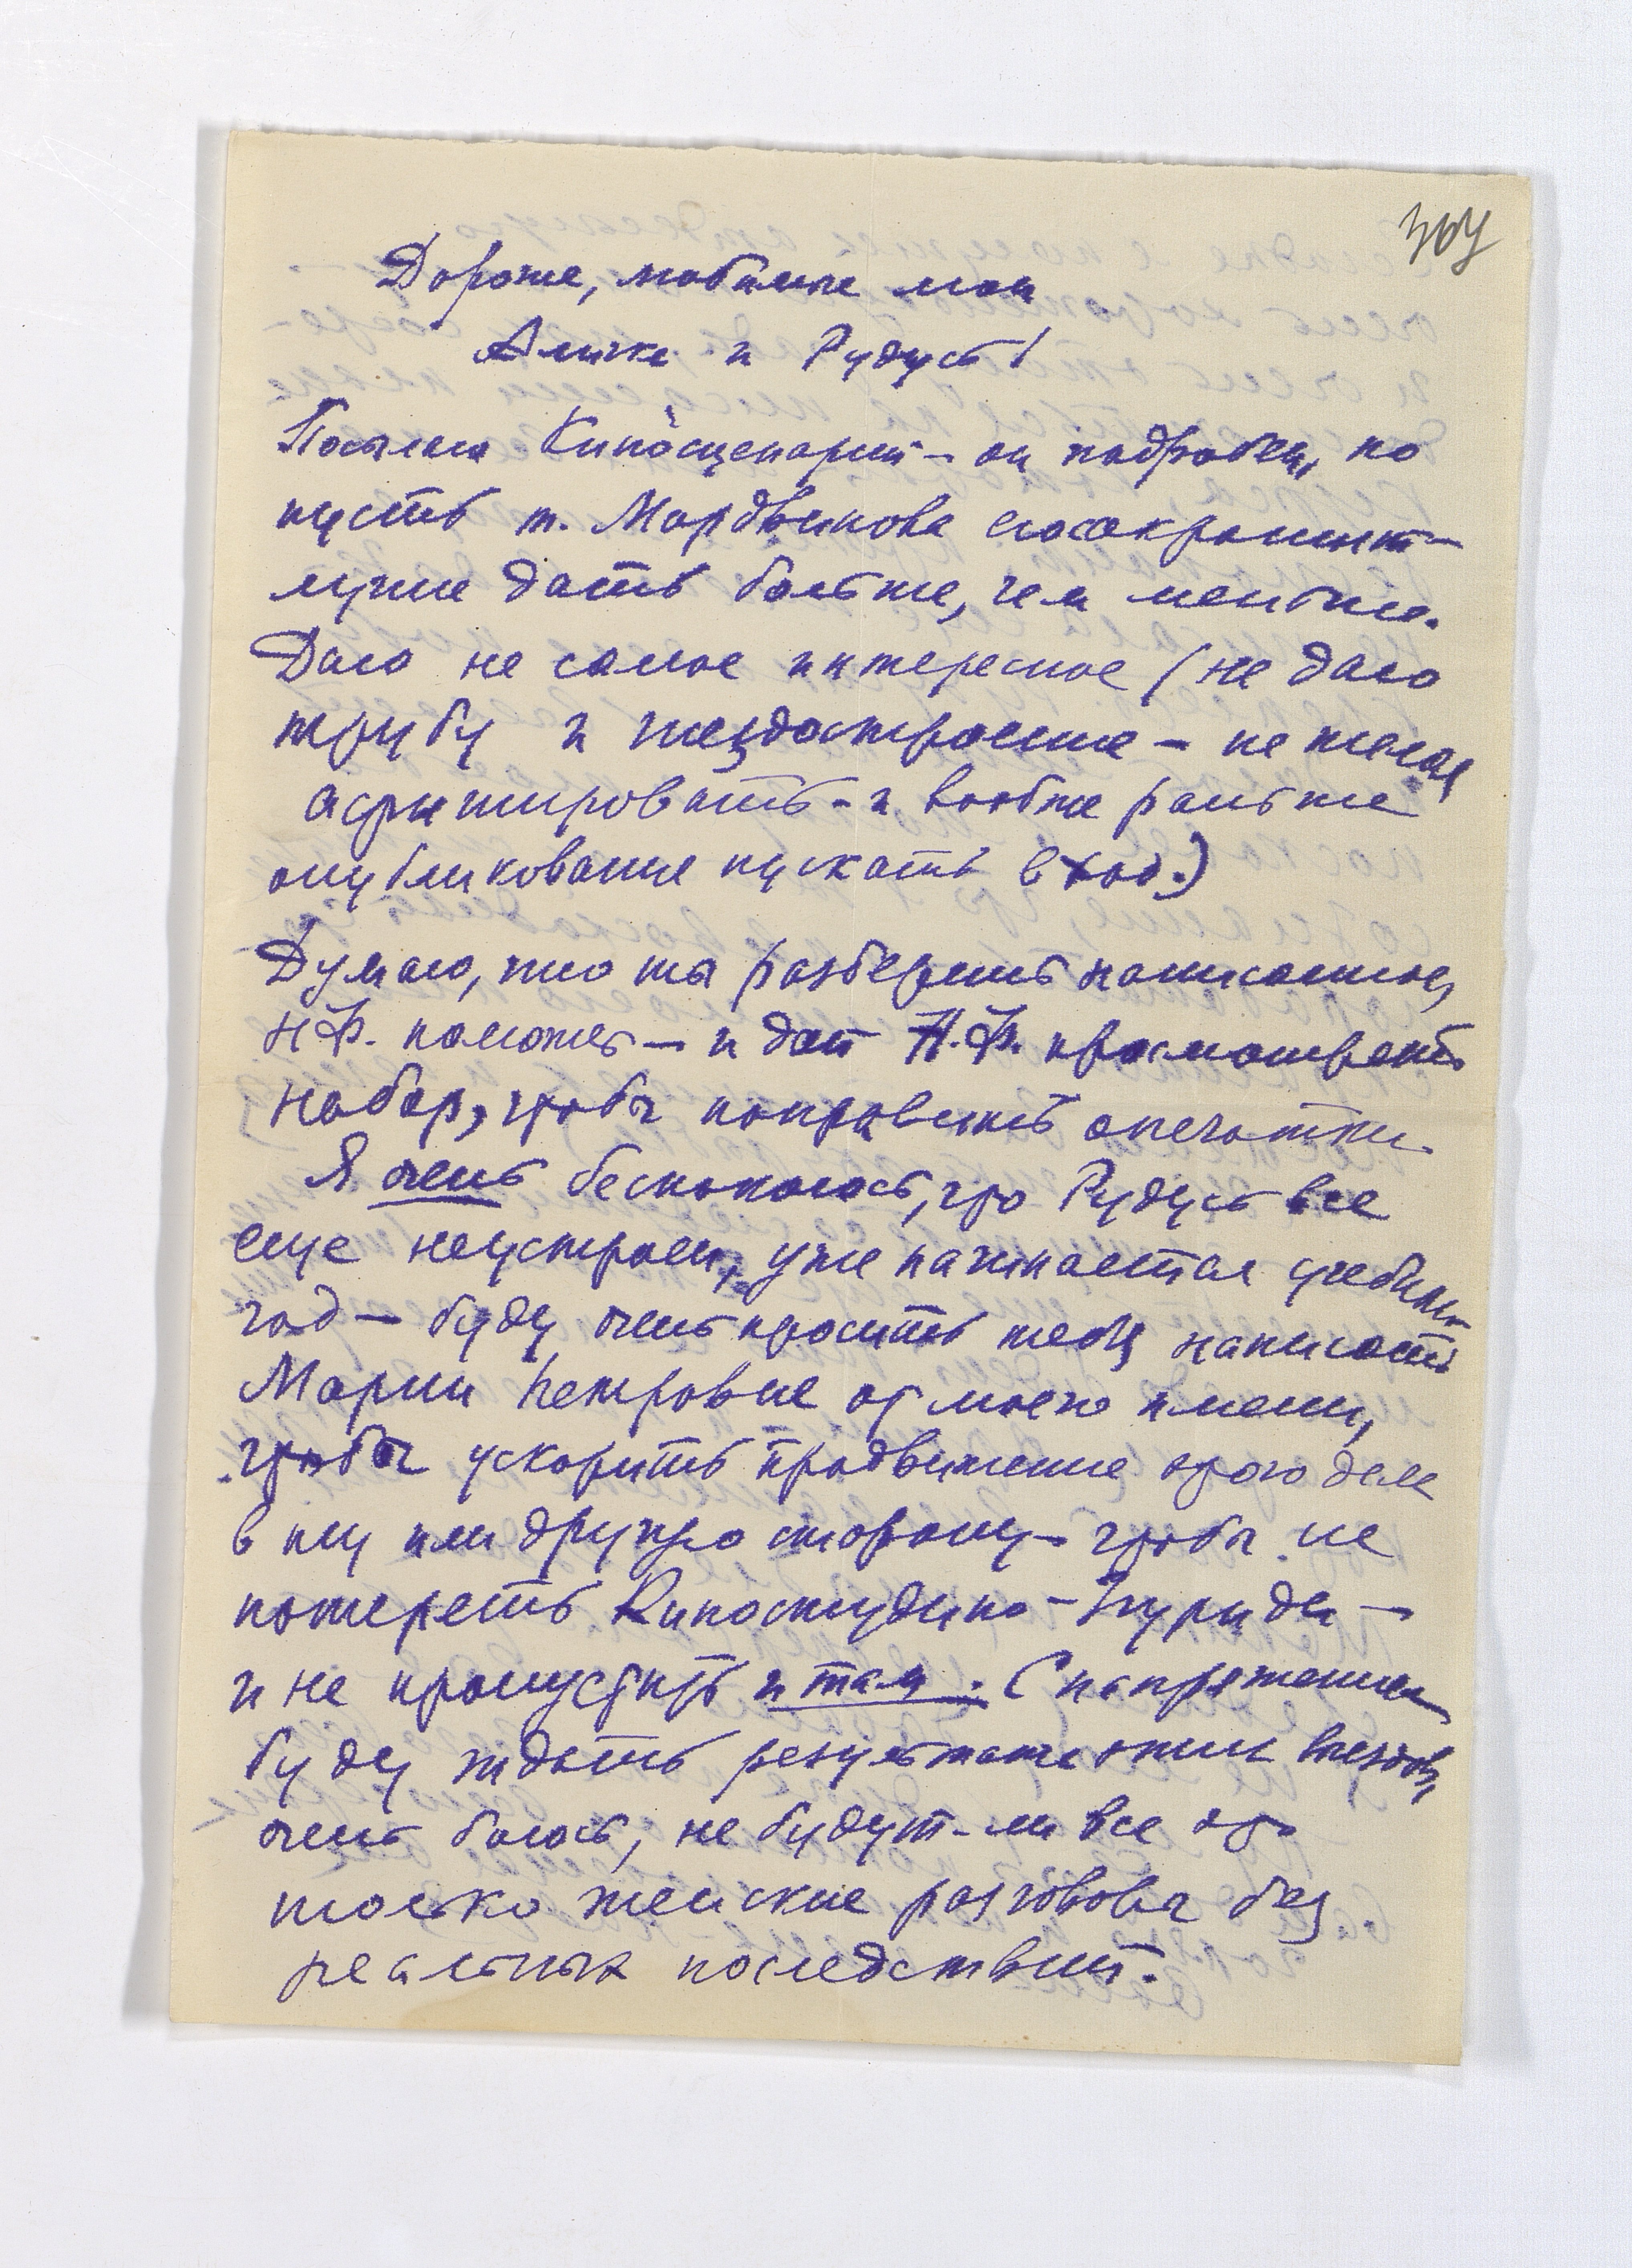 307
Дорогие, любимые мои
Аличка и Рудусь!
Посылаю Киносценарий – он подробен, но
пусть т. Мордвинова его сократит –
лучше дать больше, чем меньше.
Даю не самое интересное (не даю
трубу и гнездостроение – не желая
афишировать – и вообще раньше
опубликования пускать в ход.)
Думаю, что ты разберешь написанное,
Н.Ф. поможет – и дай Н.Ф. просмотреть
набор, чтобы поправить опечатки.
Я очень беспокоюсь, что Рудусь все
еще неустроен, уже начинается учебный
год – буду очень просить тебя написать
Марии Петровне от моего имени,
чтобы ускорить продвижение этого дела
в ту или другую сторону – чтобы не
потерять Киностудию –
и не пропустить и там. С напряжением
буду ждать результаты этих
очень боюсь, не будут-ли все это
только женские разговоры без
реальных последствий.